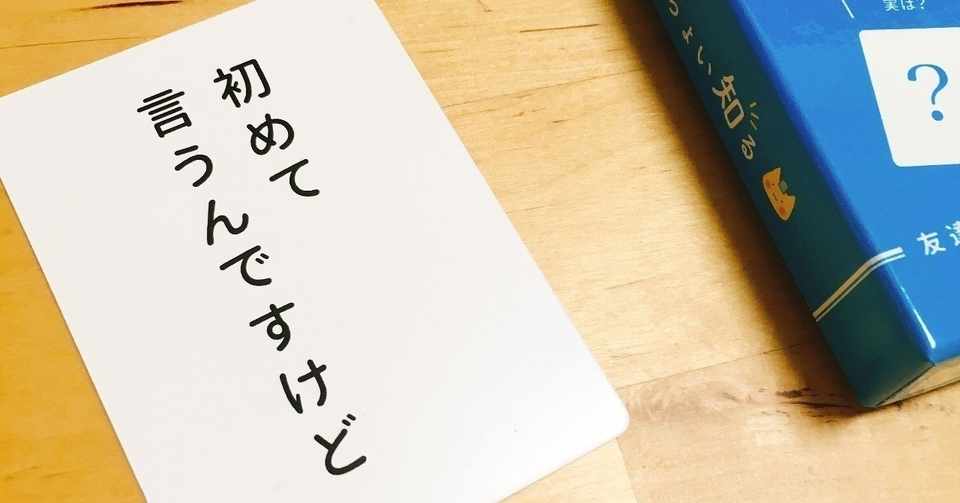 初めて
言うんですけど
ょい知る
実は?
?
友達